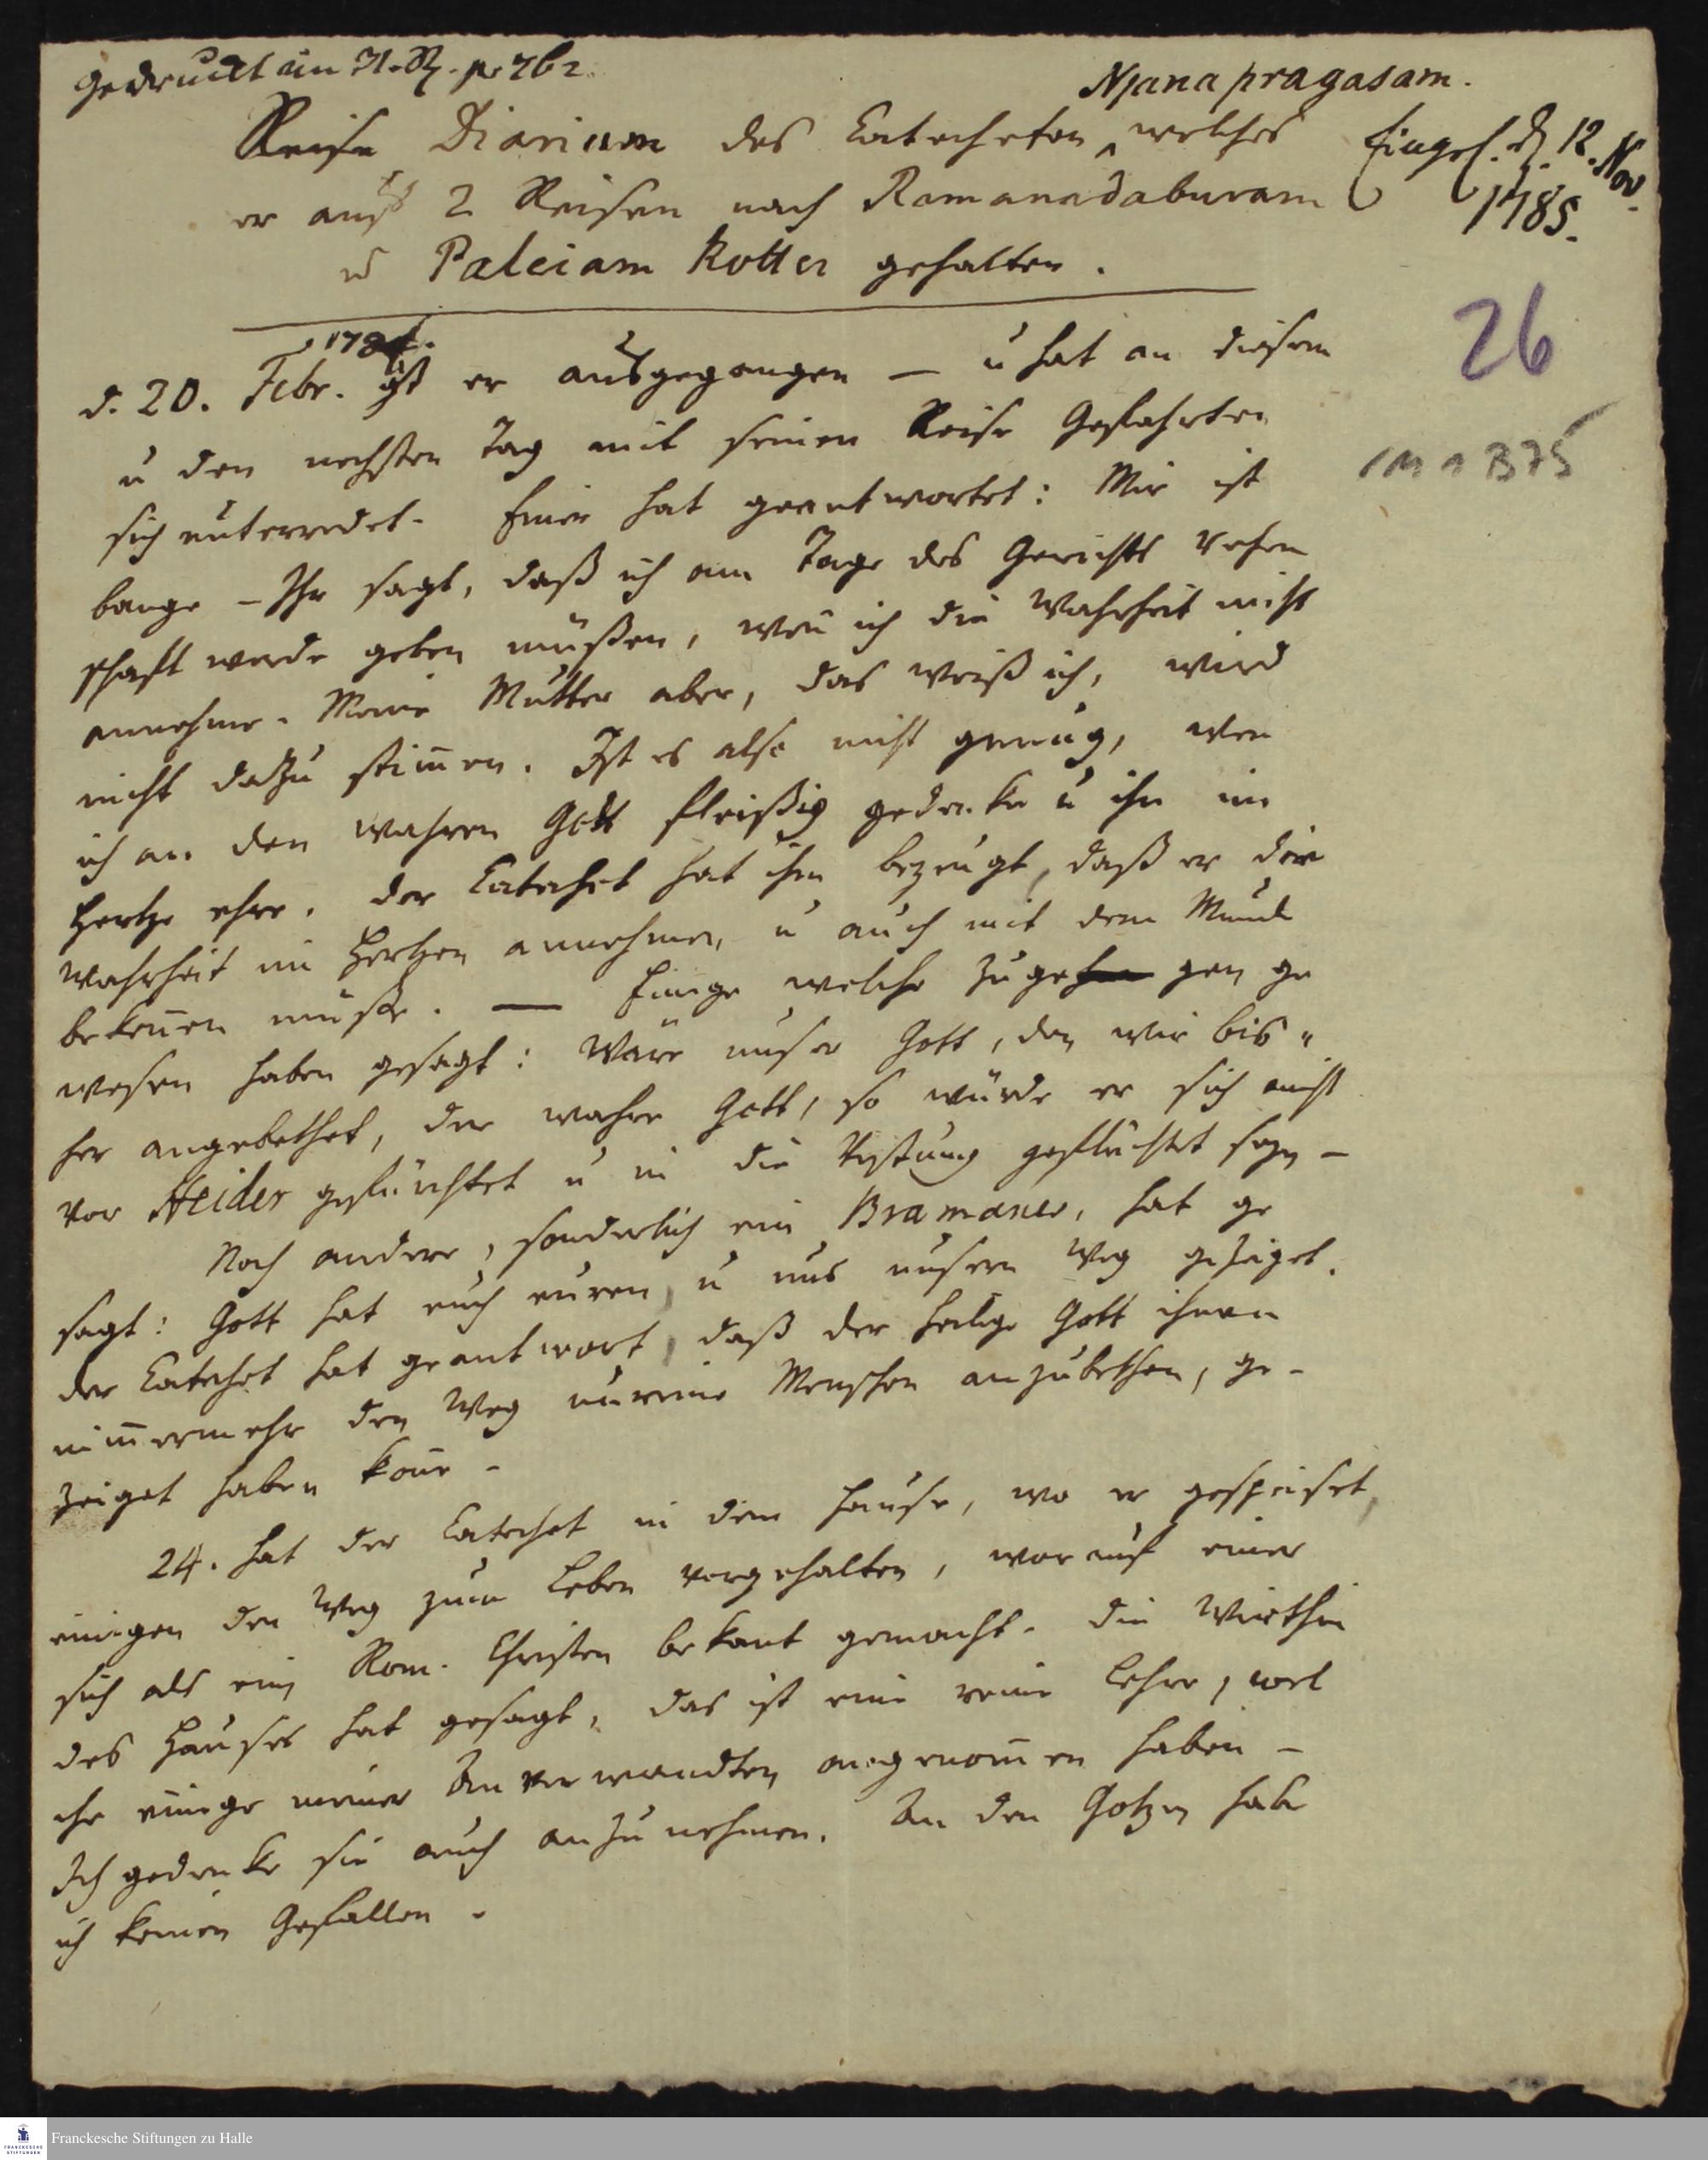 gedruckt im N. St. p. 762.
Njana pragasam.
Reise Diarium des Catecheten ^ welches
er auf 2 Reisen nach Ramanadaburam
u Paleiam Kotter gehalten.
Eingel. d. 12. Nov.
1785.
26
1784.
d. 20. Febr. ist er ausgegangen – u hat an diesem
u den nechsten Tag mit seinen Reise Gefährten
sich unterredet. Einer hat geantwortet: Mir ist
bange – Ihr sagt, daß ich am Tage des Gerichts rechen
schaft werde geben müßen, weñ ich die Wahrheit nicht
annehme. Meine Mutter aber, das weiß ich, wird
nicht dazu stim̃en. Ist es also nicht genug, wen
ich an den wahren Gott fleißig gedenke u ihn im
Hertze ehre. der Catechet hat ihm bezeugt, daß er die
Wahrheit im Hertzen annehmen, u auch mit dem Munde
bekeñen müße. — Einige welche zugegen ge
wesen haben gesagt: Wäre unser Gott, den wir bis"
her angebethet, der wahre Gott, so würde er sich nicht
vor Heider gefürchtet u in die Vestung geflüchtet seyn –
Noch andere, sonderlich ein Bramaner, hat ge
sagt: Gott hat euch euren, u uns unsern Weg gezeiget.
der Catechet hat geantwort, daß der heilige Gott ihnen
nim̃ermehr den Weg unreine Menschen anzubethen, ge-
zeiget haben köñe –
24. hat der Catechet in dem Hause, wo er gespeiset,
einigen den Weg zum Leben vorgehalten, worauf einer
sich als ein Rom. Christen bekant gemacht. die Wirthin
des Hauses hat gesagt, das ist eine reine Lehre, wel
che einige meiner Anverwandten angenom̃en haben –
Ich gedenke sie auch anzunehmen. An den Gotzen habe
ich keinen Gefallen.
Franckesche Stiftungen zu Halle
FRANCKESCHE
STIFTUNGEN